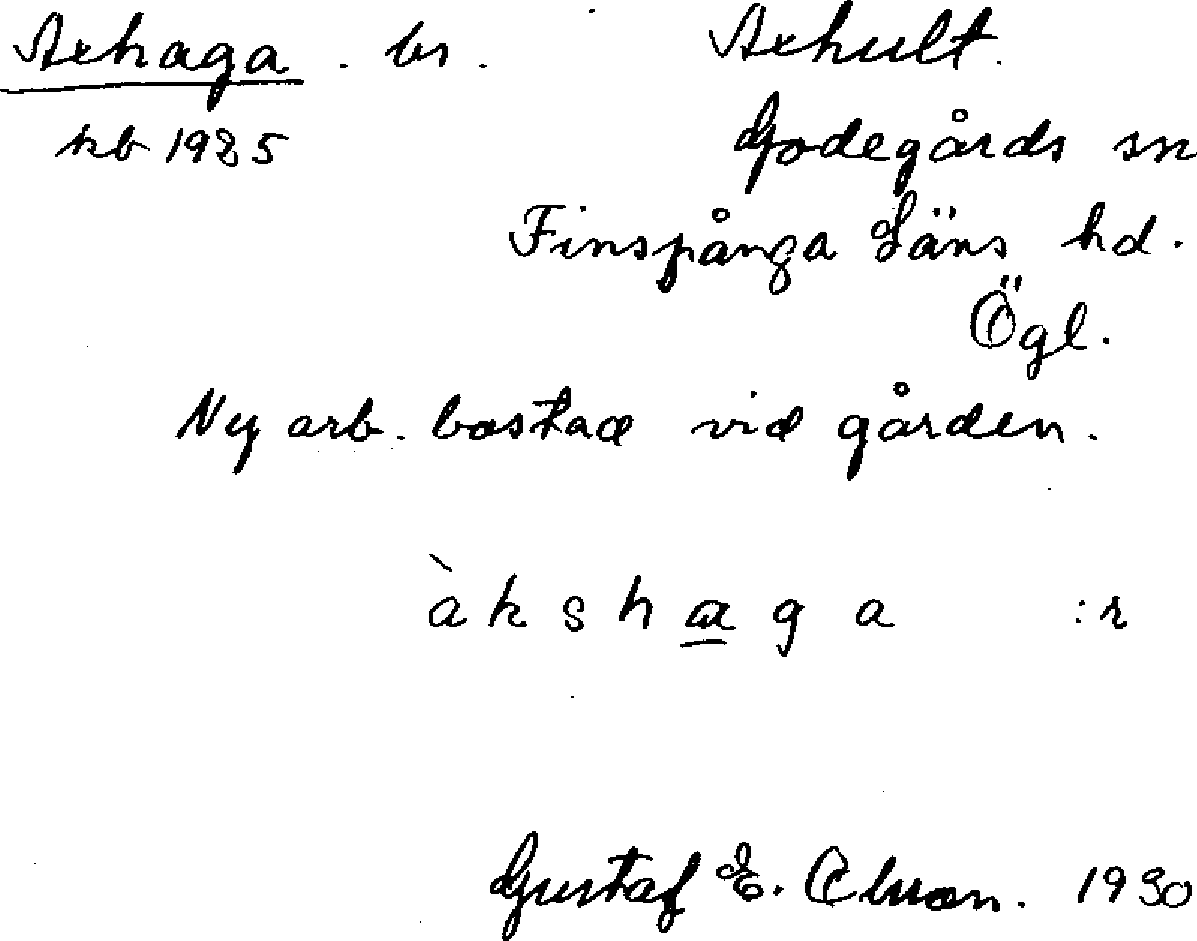 Axhaga . br . Axhult.
kb 1925 Godegårds sn
Finspånga Läns hd.
Ögl.
Ny arb. bostad vid gården.
àkshaga :r
Gustaf E. 1930